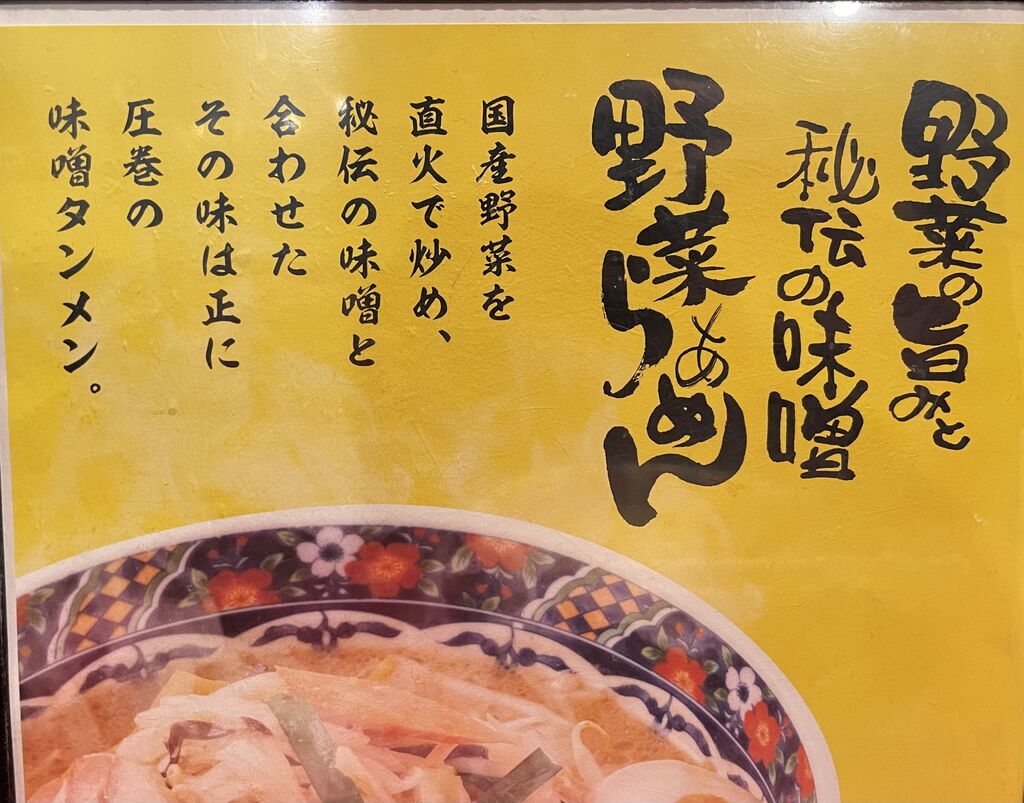 野菜の旨みと
秘伝の味噌
野菜らぁめん
国産野菜を
直火で炒め、
秘伝の味噌と
合わせた
その味は正に
圧巻の
味噌タンメン。